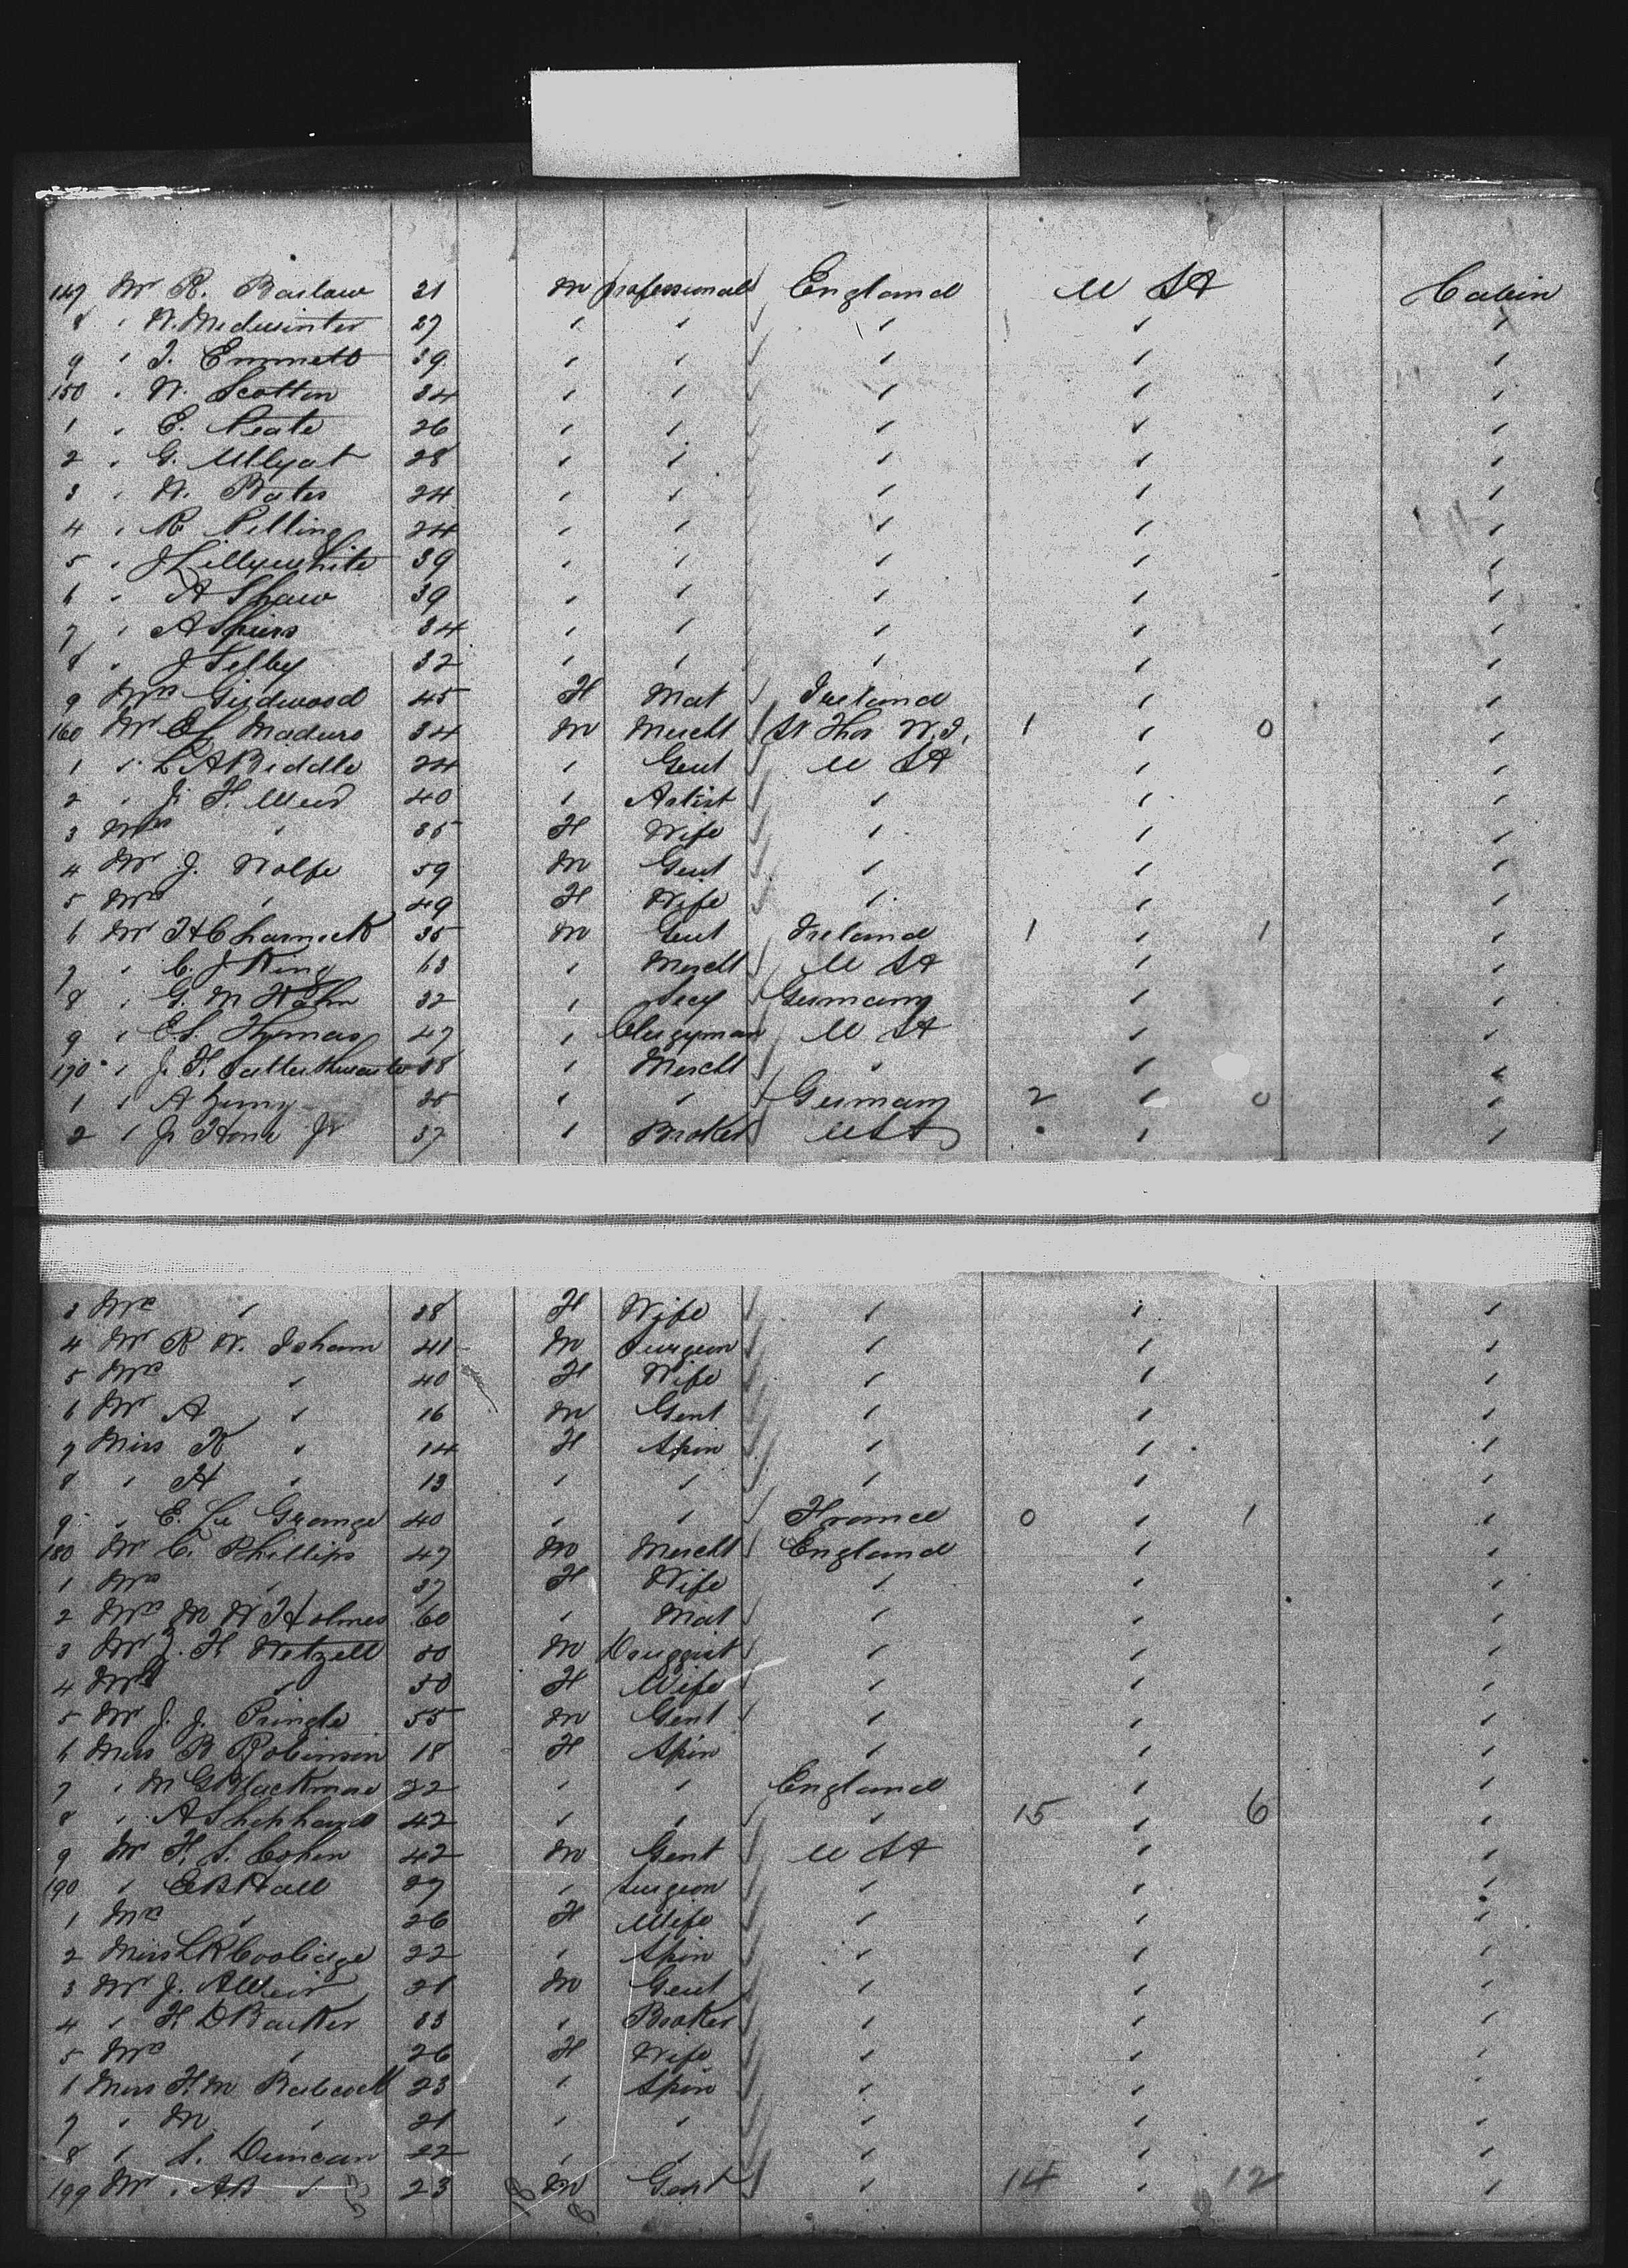 147 Mr R. Barlow 31 M professional England U St Cabin
8 " W. Midwinter 27 " " " " "
9 " T. Emmett 39 " " " " "
150 " W. Scotton 34 " " " " "
1 " E. Peate 26 " " " " "
2 " G. Ullyat 28 " " " " "
3 " W. Bates 24 " " " " "
4 " R. Pilling 24 " " " " "
5 " J Lillywhite 39 " " " " "
6 " A Shaw 39 " " " " "
7 " A Spiers 34 " " " " "
8 " J Selby 32 " " " " "
9 Mrs Girdwood 45 F Mat Ireland " "
160 Mr E L Maduro 34 M Mercht St Thos W.I. 1 " 0 "
1 " L A Biddle 24 " Gent U St " "
2 " J. F. Weir 40 " Artist " " "
3 Mrs " 35 F Wife " " "
4 Mr J. Wolfe 59 M Gent " " "
5 Mrs " 49 F Wife " " "
6 Mr H Charnick 35 M Gent Ireland 1 " 1 "
7 " C. J King 63 " Mercht U St " "
8 " G. W Hahn 32 " Secy Germany " "
9 " E S. Thomas 47 " Clergyman U St " "
170 " J. F. Satterthwaite 38 " Mercht " " "
1 " A 35 " " Germany 2 " 0 "
2 " J. Hone Jr 37 " Broker U St " "
3 Mrs " 38 F Wife " " "
4 Mr R W. Isham 41 M Surgeon " " "
5 Mrs " 40 F Wife " " "
6 Mr A " 16 M Gent " " "
7 Miss K " 14 F Spin " " "
8 " H " 13 " " " " "
9 " E. Le Grange 40 " " France 0 " 1 "
180 Mr C. Phillips 47 M Mercht England " "
1 Mrs " 37 F Wife " " "
2 Mrs M W Holmes 60 " Mat " " "
3 Mr J. F. Wetzell 50 M Druggist " " "
4 Mrs " 50 F Wife " " "
5 Mr J. J. Pringle 55 M Gent " " "
6 Miss B Robinson 18 F Spin " " "
7 " M G Blackman 22 " " England " "
8 " A Shephard 42 " " " 15 " 6 "
9 Mr F. S. Cohen 42 M Gent U St " "
190 " E B Hall 27 " Surgeon " " "
1 Mrs " 26 F Wife " " "
2 Miss L R Coolidge 22 " Spin " " "
3 Mr J. A Weir 21 M Gent " " "
4 " F. D Barker 33 " Broker " " "
5 Mrs " 26 F Wife " " "
6 Miss F. M Babcock 23 " Spin " " "
7 " M " 21 " " " " "
8 " S. Duncan 22 " " " " "
199 Mr " A B " 23 M Gent " 14 " 12 "